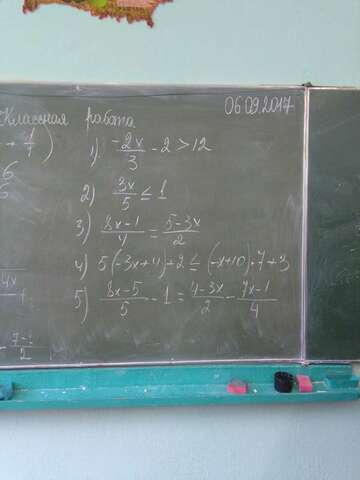 06.09.2017
Классная работа
1) -2x/3 - 2 > 12
2) 3x/5 ≤ 1
3) 8x-1/4 = 5-3x/2
4) 5(-3x+4)+2 ≤ (-x+10)·7+3
5) 8x-5/5 - 1 = 4-3x/2 - 7x-1/4